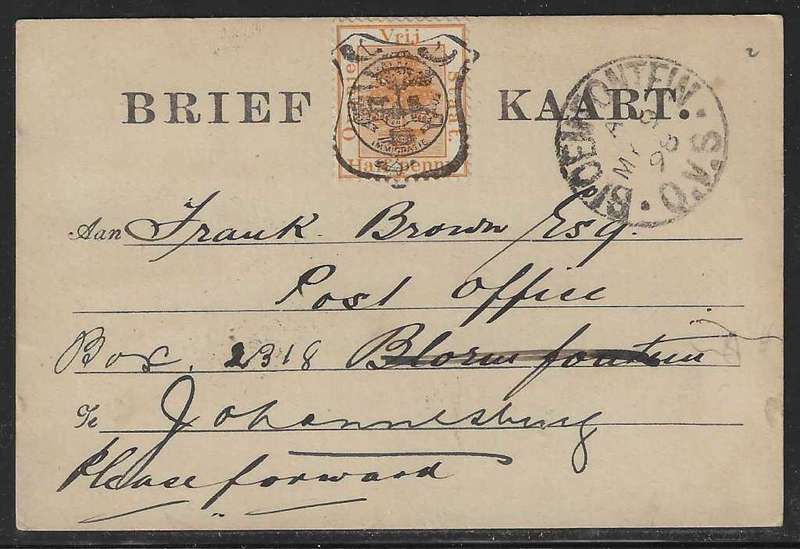 Vrij
Staat.
BRIEF KAART.
IMMIGRATIE
Half penny
BLOEMFONTEIN · O.V.S ·
MY
98
Aan Frank Brown Esq.
Post Office
Box. 2318 Bloemfontein
Te Johannesburg
Please forward
2